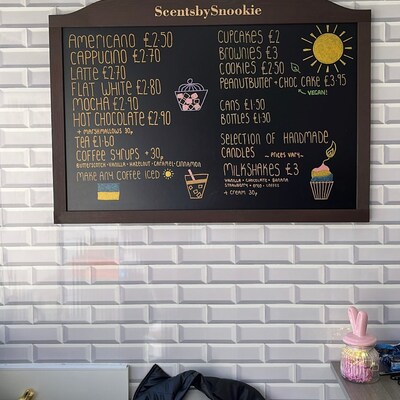 ScentsbySnookie
AMERICANO £2.50
CAPPUCINO £2.70
LATTE £2.70
FLAT WHITE £2.80
MOCHA £2.90
HOT CHOCOLATE £2.90
+ MARSHMALLOWS 30p
TEA £1.60
COFFEE SYRUPS +30p
BUTTERSCOTCH - VANILLA - HAZELNUT - CARAMEL - CINNAMON
MAKE ANY COFFEE ICED
CUPCAKES £2
BROWNIES £3
COOKIES £2.50
PEANUTBUTTER + CHOC CAKE £3.95
VEGAN!
CANS £1.50
BOTTLES £1.30
SELECTION OF HANDMADE
CANDLES - PRICES VARY -
MILKSHAKES £3
VANILLA - CHOCOLATE - BANANA
STRAWBERRY - OREO - COFFEE
+ CREAM 30p